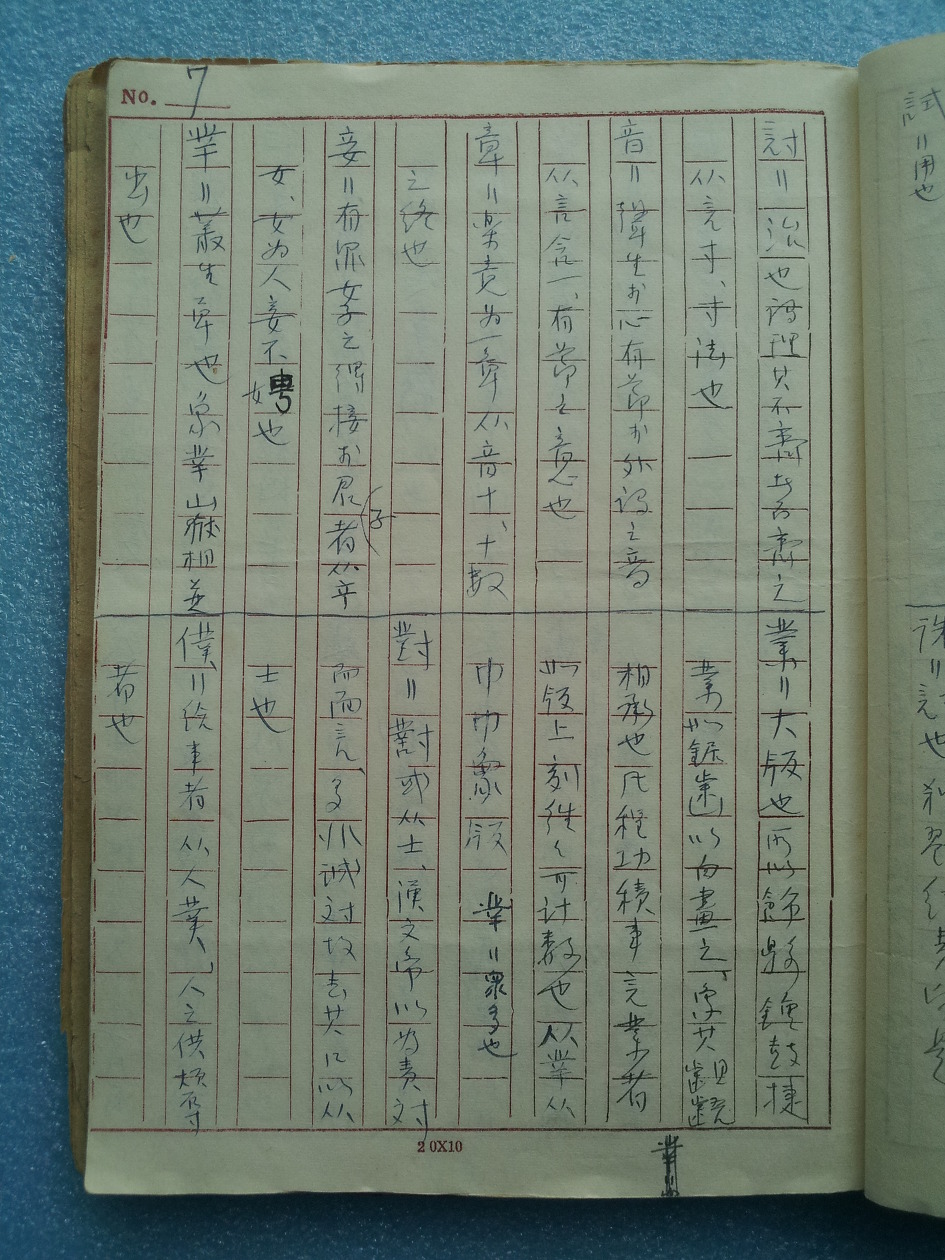 No. 7
討〃治也謂理其不齊者而齊之
从言寸、寸法也
音〃聲生於心有節於外謂之音
从言含一、有節之意也
章〃樂竟為一章从音十、十數
之終也
妾〃有罪女子之得接於君者从辛
子
女、女为人妾不娉也
丵〃叢生草也象丵嶽相並
出也
業〃大版也所以飾縣鐘鼓捷
業如鋸齒以白畫之、象其齟齬
相承也凡程功積事言業者
如版上刻往々可计数也从丵从
巾巾象版 丵〃眾多也
對〃對或从士、漢文帝以为责对
而面言、多非诚对故去其口以从
士也
僕〃给事者从人菐、人之供烦辱
者也
20X10
試〃用也